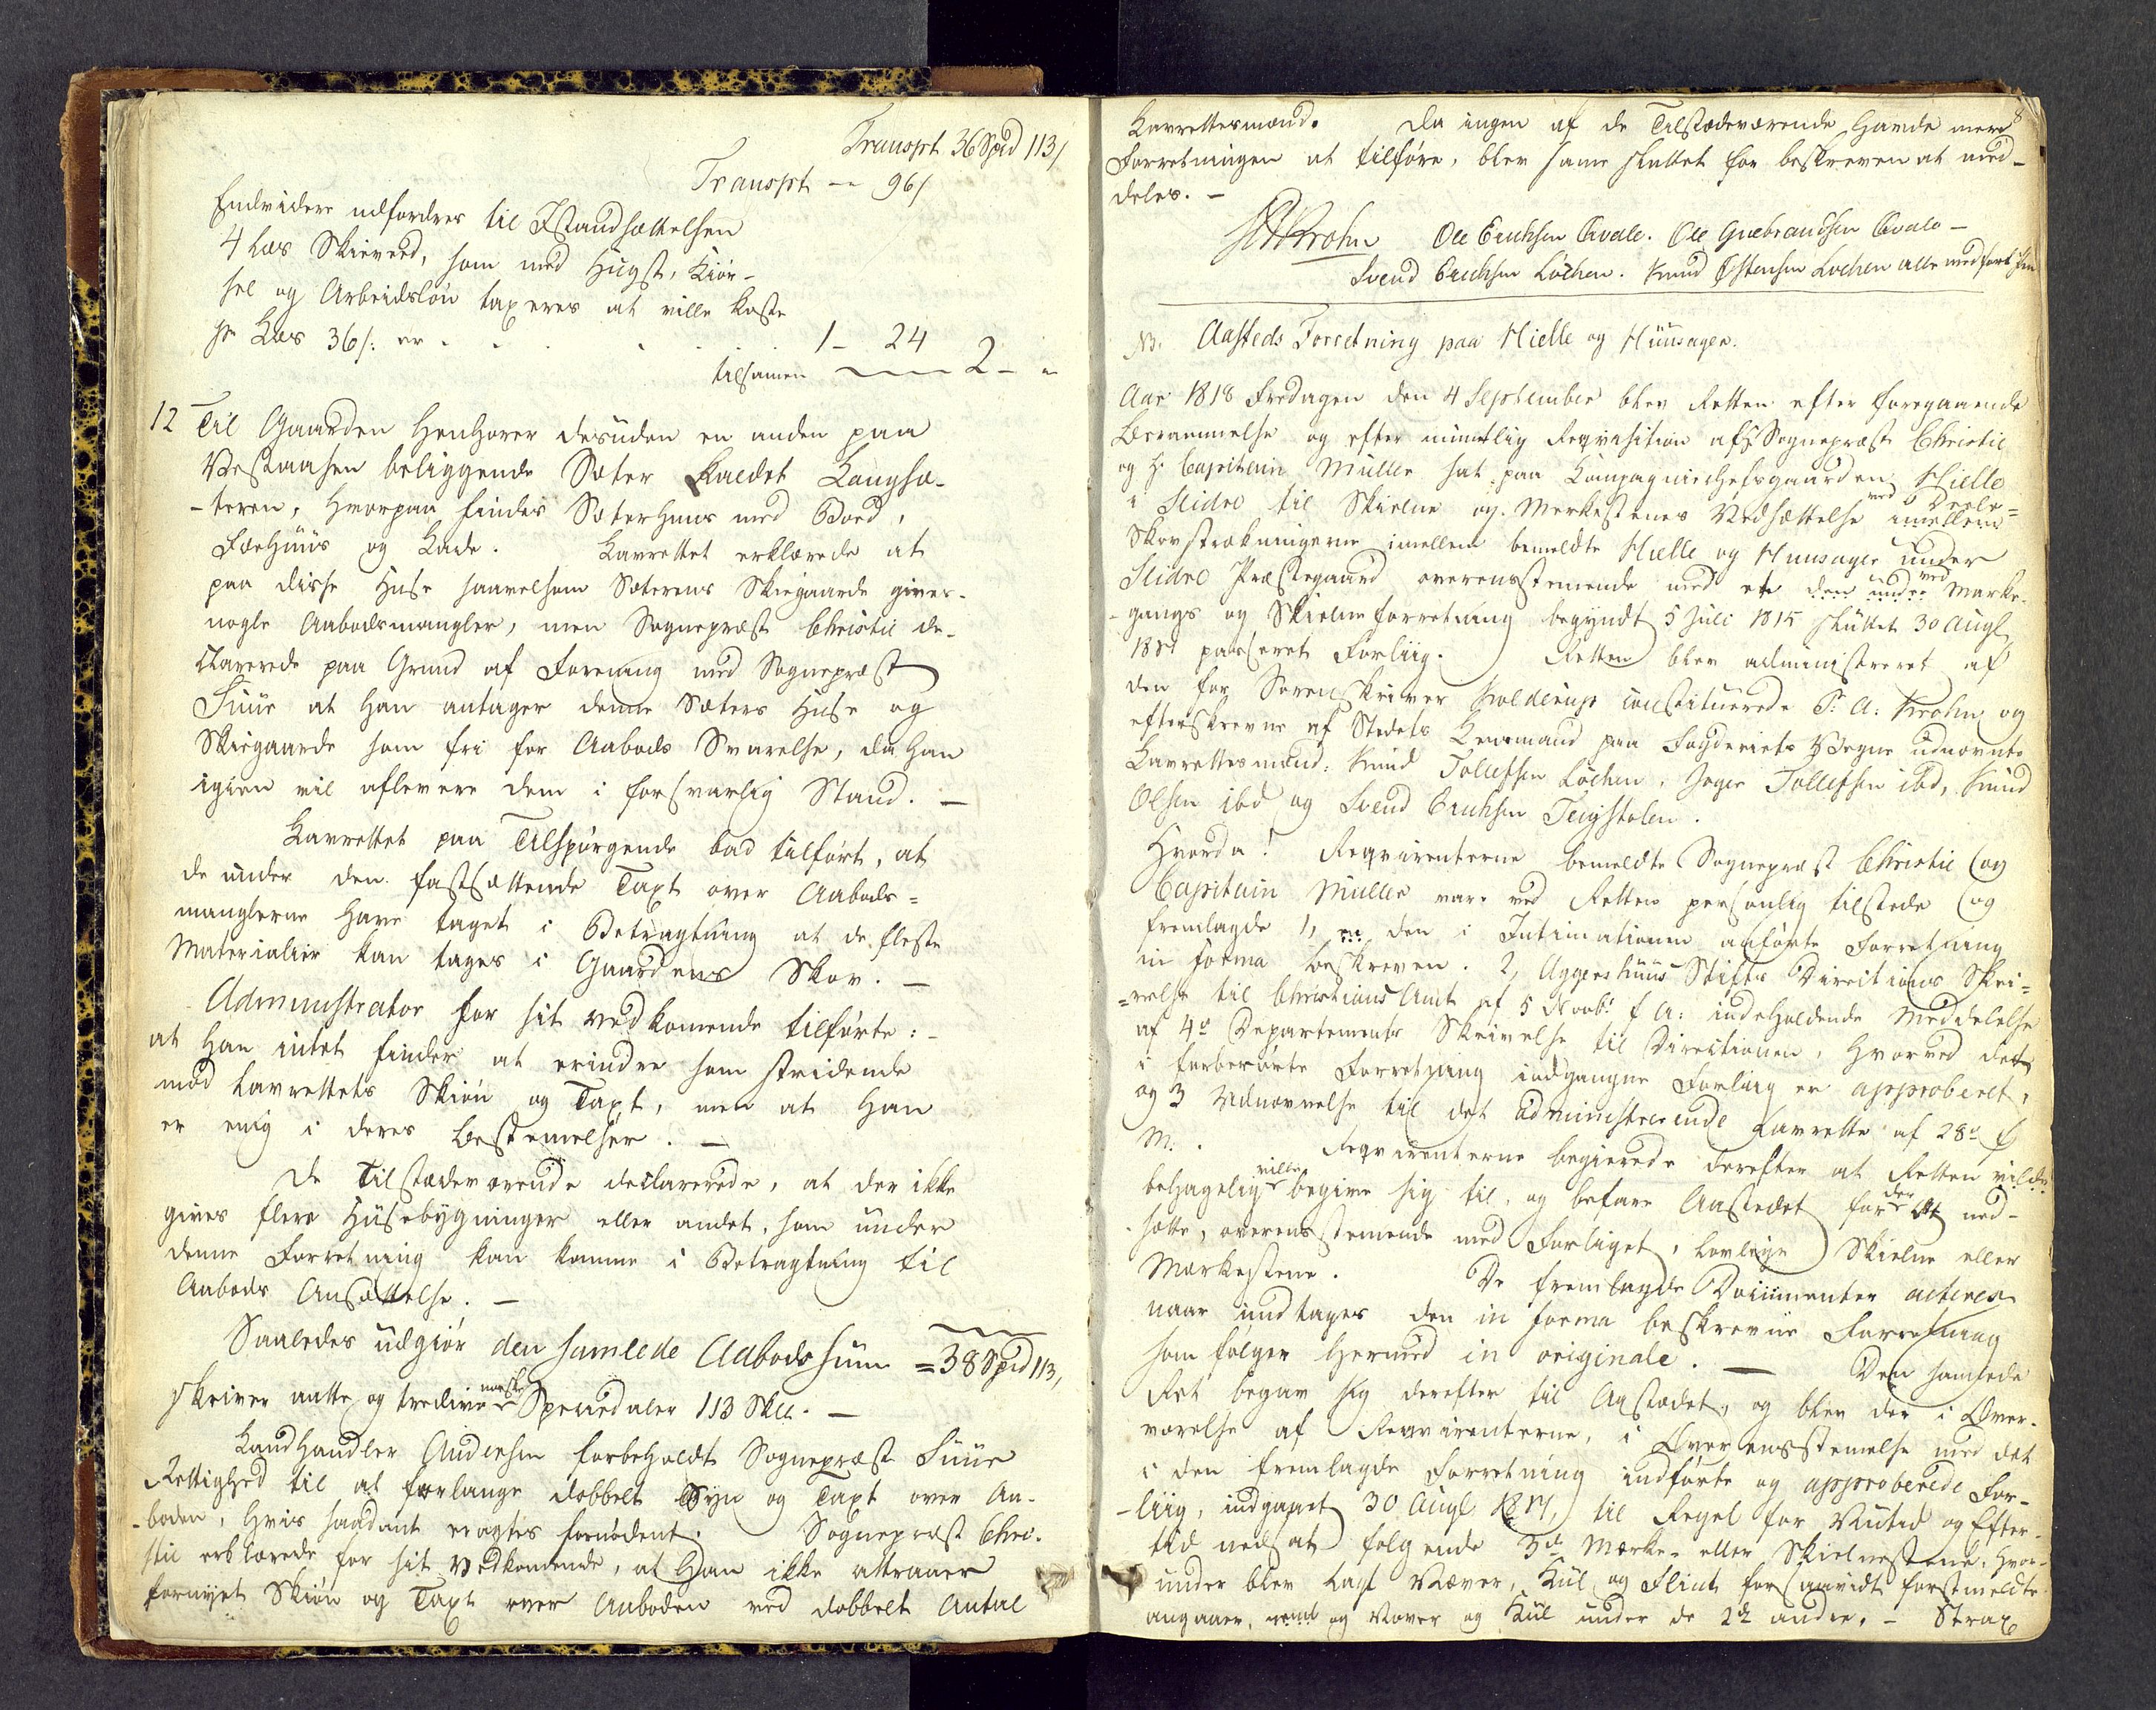 Transprt 36 Spd 113/
Transprt -- 96/
Endvidere udfordres til Istandsættelsen
4 Læs Skieved, som med Hugst, Kiør-
sel og Arbeidsløn taxeres at ville koste
pr Læs 36/: er . . . . . . 1 - 24
tilsamen 2 - "
12 Til Gaarden henhører desuden en anden paa
Vestaasen beliggende Sæter kaldet Langsæ-
-teren, hvorpaa findes Sæterhuus med Boed,
Fæehuus og Lade. Lavrettet erklærede at
paa disse Huse saavelsom Sæterens Skigaarde gives
nogle Aabodsmangler, men Sognepræst Christie de-
clarerede paa Grund af Forening med Sognepræst
Suur at han antager denne Sæters Huse og
Skiegaarde som fri for Aabods Svarelse, da han
igien vil aflevere dem i forsvarlig Stand. -
Lavrettet paa Tilspørgende bad tilført, at
de under den fastsættende Taxt over Aabods=
manglerne have taget i Betragtning at de fleste
Materialier kan tages i Gaardens Skov. -
Administrator for sit Vedkomende tilførte:-
at han intet finder at erindre som stridende
mod Lavrettets Skiøn og Taxt, men at han
er enig i deres Bestemelser. -
De Tilstædeværende declarerede, at der ikke
gives flere Husebygninger eller andet, som under
denne Forretning kan komme i Betragtning til
Aabods Ansættelse. -
Saaledes udgiør den samlede Aabods Sum = 38 Spd 113,
skriver aatte og tredive norske Speciedaler 113 Skll. -
Landhandler Andersen forbeholdt Sognepræst Suur
Rettighed til at forlange dobbelt Syn og Taxt over Aa-
-boden, hvis saadant eragtes fornødent. Sognepræst Chri-
stie erklærede for sit Vedkomende, at han ikke attraaer
fornyet Skiøn og Taxt over Aaboden ved dobbelt Antal
8
Lavrettesmænd. Da ingen af de Tilstædeværende havde mere
Forretningen at tilføre, blev same sluttet for beskreven at med-
deles. -
Krohn Ole Erichsen Qvale. Ole Gulbrandsen Qvale -
Svend Erichsen Løchen. Knud Østensen Løchen alle med ført Pen
No. Aasteds Forretning paa Hielle og Huusager.
Aar 1818 Fredagen den 4 September blev Retten efter foregaaende
Berammelse og efter mundtlig Reqvisition af Sognepræst Christie
og Hr Capitain Müller sat paa Kompagniechefsgaarden Hielle
i Slidre til Skielne og Merkestenes Nedsættelse ved Deele=
Skovstrækningerne imellem bemeldte Hielle og Huusager under
Slidre Præstegaard overensstemende med et den under ved Marke-
-gangs og Skielneforretning begyndt 5 Juli 1815 sluttet 30 Augl
1817 passeret Forliig. Retten blev administreret af
den for Sorenskriver Holderup constituerede S: A: Krohn og
efterskrevne af Stedets Lensmand paa Fogderiets Vegne udnævnte
Lavrettesmænd: Knud Tollefsen Løchen, Joger Tollefsen ibd, Knud
Olsen ibd og Svend Erichsen Teigstolen.
Hvorda! Reqvirenterne bemeldte Sognepræst Christie og
Capitain Müller vare ved Retten personlig tilstede og
fremlagde 1, den i Intimationen anførte Forretning
in forma beskreven. 2, Aggershuus Stifts Directions Skri=
=velse til Christians Amt af 5 Novbr f A: indeholdende Meddelelse
af 4de Departements Skrivelse til Directionen, hvorved det
i forberørte Forretning indgangne Forliig er approberet,
og 3 Udnævnelse til det administrerende Lavrette af 28de f
M. Reqvirenterne begierede derefter at Retten vilde
behageligt ville begive sig til, og befare Aastedet for der at ned-
-sætte, overensstemende med Forliget, lovlige Skielne eller
Mærkestene. De fremlagde Documenter acteres
naar undtages den in forma beskrevne Forretning
som følger hermed in originale. - Den samlede
Ret begav sig derefter til Aastædet, og blev der i Over-
værelse af Reqvirenterne, i Overensstemelse med det
i den fremlagde Forretning indførte og approberede For-
-liig, indgaaet 30 Augl 1817, til Regel for Nutid og Efter-
tid nedsat følgende 3de Mærke- eller Skielnestene, hvor-
under blev lagt Næver, Kul og Flint forsaavidt førstmeldte
angaaer, og Næver og Kul under de 2de andre. - Strax